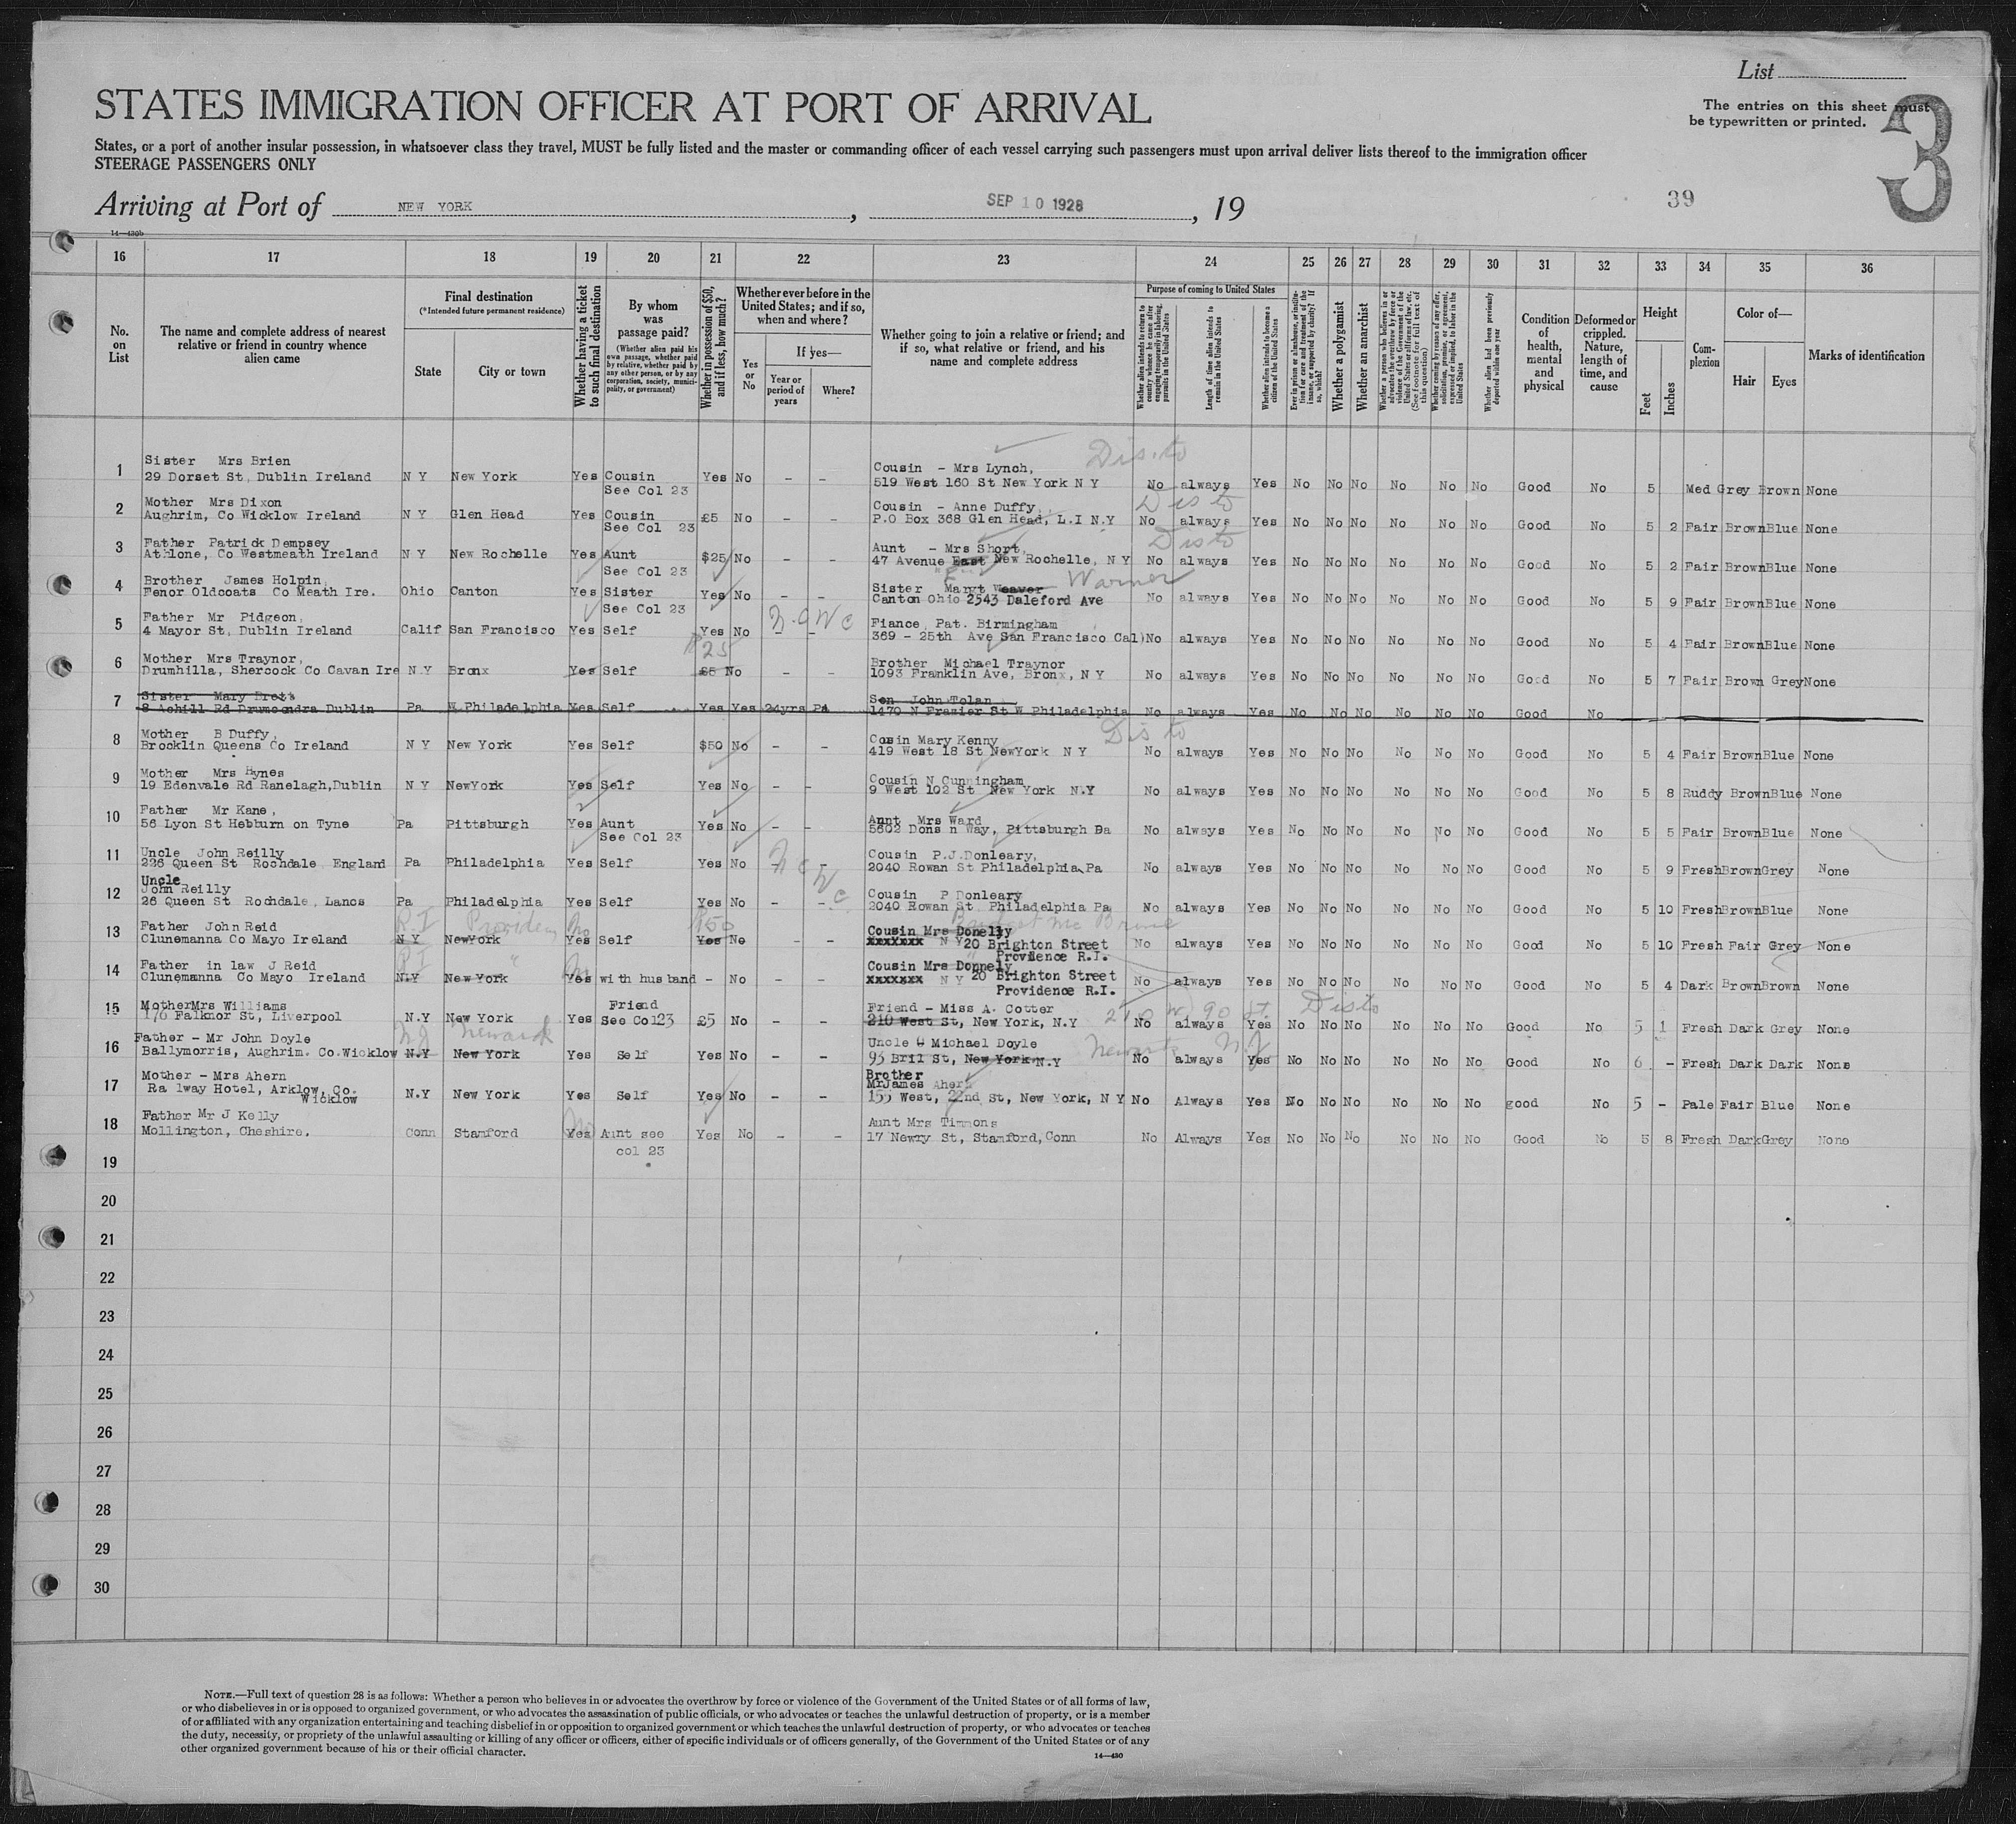 List
The entries on this sheet must
be typewritten or printed.
3
STATES IMMIGRATION OFFICER AT PORT OF ARRIVAL
States, or a port of another insular possession, in whatsoever class they travel, MUST be fully listed and the master or commanding officer of each vessel carrying such passengers must upon arrival deliver lists thereof to the immigration officer
STEERAGE PASSENGERS ONLY
Arriving at Port of NEW YORK, SEP 10 1928, 19
39
14—430b
16 17 18 19 20 21 22 23 24 25 26 27 28 29 30 31 32 33 34 35 36
No. on List
The name and complete address of nearest relative or friend in country whence alien came
Final destination
(*Intended future permanent residence)
State
City or town
Whether having a ticket to such final destination
By whom was passage paid?
(Whether alien paid his own passage, whether paid by relative, whether paid by any other person, or by any corporation, society, municipality, or government)
Whether in possession of $50, and if less, how much?
Whether ever before in the United States; and if so, when and where?
Yes or No
If yes—
Year or period of years
Where?
Whether going to join a relative or friend; and if so, what relative or friend, and his name and complete address
Purpose of coming to United States
Whether alien intends to return to country whence he came after engaging temporarily in laboring pursuits in the United States
Length of time alien intends to remain in the United States
Whether alien intends to become a citizen of the United States
Ever in prison or almshouse, or institution for care and treatment of the insane, or supported by charity? If so, which?
Whether a polygamist
Whether an anarchist
Whether a person who believes in or advocates the overthrow by force or violence of the Government of the United States or all forms of law, etc. (See footnote for full text of this question)
Whether coming by reason of any offer, solicitation, promise, or agreement, expressed or implied, to labor in the United States
Whether alien had been previously deported within one year
Condition of health, mental and physical
Deformed or crippled. Nature, length of time, and cause
Height
Feet
Inches
Complexion
Color of—
Hair
Eyes
Marks of identification
1 Sister Mrs Brien
29 Dorset St, Dublin Ireland N Y New York Yes Cousin See Col 23 Yes No - - Cousin - Mrs Lynch, 519 West 160 St New York N Y Dis. to No always Yes No No No No No No Good No 5 Med Grey Brown None
2 Mother Mrs Dixon
Aughrim, Co Wicklow Ireland N Y Glen Head Yes Cousin See Col 23 £5 No - - Cousin - Anne Duffy, P.O Box 368 Glen Head, L.I N.Y Dis to No always Yes No No No No No No Good No 5 2 Fair Brown Blue None
3 Father Patrick Dempsey
Athlone, Co Westmeath Ireland N Y New Rochelle Yes Aunt See Col 23 $25 No - - Aunt - Mrs Short, 47 Avenue East New Rochelle, N Y Dis to "E" No always Yes No No No No No No Good No 5 2 Fair Brown Blue None
4 Brother James Holpin
Fenor Oldcoats Co Meath Ire. Ohio Canton Yes Sister See Col 23 Yes No - - Sister Margt Weaver Warner Canton Ohio 2543 Daleford Ave No always Yes No No No No No No Good No 5 9 Fair Brown Blue None
5 Father Mr Pidgeon,
4 Mayor St, Dublin Ireland Calif San Francisco Yes Self Yes No - - Fiance Pat. Birmingham 369 - 25th Ave San Francisco Cal) No always Yes No No No No No No Good No 5 4 Fair Brown Blue None
6 Mother Mrs Traynor,
Drumhilla, Shercock Co Cavan Ire N.Y Bronx Yes Self $25 £5 No - - Brother Michael Traynor 1093 Franklin Ave, Bronx, N Y No always Yes No No No No No No Good No 5 7 Fair Brown Grey None
7 Sister Mary Brett
8 Achill Rd Drumcondra Dublin Pa W Philadelphia Yes Self Yes Yes 24yrs Pa Son John Tolan 1470 N Frazier St W Philadelphia No always Yes No No No No No No Good No
8 Mother B Duffy,
Brocklin Queens Co Ireland N Y New York Yes Self $50 No - - Cosin Mary Kenny 419 West 18 St NewYork N Y Dis to No always Yes No No No No No No Good No 5 4 Fair Brown Blue None
9 Mother Mrs Hynes
19 Edenvale Rd Ranelagh, Dublin N Y NewYork Yes Self Yes No - - Cousin N Cunningham 9 West 102 St New York N.Y No always Yes No No No No No No Good No 5 8 Ruddy Brown Blue None
10 Father Mr Kane,
56 Lyon St Hebburn on Tyne Pa Pittsburgh Yes Aunt See Col 23 Yes No - - Aunt Mrs Ward 5602 Pittsburgh Pa No always Yes No No No No No No Good No 5 5 Fair Brown Blue None
11 Uncle John Reilly
226 Queen St Rochdale England Pa Philadelphia Yes Self Yes No - - Cousin P.J.Donleary, 2040 Rowan St Philadelphia Pa No always Yes No No No No No No Good No 5 9 Fresh Brown Grey None
12 Uncle John Reilly
26 Queen St Rochdale, Lancs Pa Philadelphia Yes Self Yes No - - Cousin P Donleary 2040 Rowan St Philadelphia Pa No always Yes No No No No No No Good No 5 10 Fresh Brown Blue None
13 Father John Reid
Clunemanna Co Mayo Ireland R.I Providen N Y NewYork No Yes Self $50 Yes No - - Cousin Mrs Donelly xxxxxxx N Y 20 Brighton Street Providence R.I. No always Yes No No No No No No Good No 5 10 Fresh Fair Grey None
14 Father in law J Reid
Clunemanna Co Mayo Ireland R I " N.Y New York Yes with husband - No - - Cousin Mrs Donnely xxxxxxx N Y 20 Brighton Street Providence R.I. No always Yes No No No No No No Good No 5 4 Dark Brown Brown None
15 Mother Mrs Williams
176 Falknor St, Liverpool N.Y New York Yes Friend See Col23 £5 No - - Friend - Miss A. Cotter 210 West St, New York, N.Y 210 W 90 St. Dis to No always Yes No No No No No No Good No 5 1 Fresh Dark Grey None
16 Father - Mr John Doyle
Ballymorris, Aughrim. Co.Wicklow NJ Newark N.Y New York Yes Self Yes No - - Uncle Michael Doyle 93 Bril St, New York N.Y Newark N.J No always Yes No No No No No No Good No 6 - Fresh Dark Dark None
17 Mother - Mrs Ahern
Ra lway Hotel, Arklow, Co. Wicklow N.Y New York Yes Self Yes No - - Brother Mr James Ahern 155 West, 22nd St, New York, N Y No Always Yes No No No No No No good No 5 - Pale Fair Blue None
18 Father Mr J Kelly
Mollington, Cheshire. Conn Stamford No Yes Aunt see col 23 Yes No - - Aunt Mrs Timmons 17 Newry St, Stamford, Conn No Always Yes No No No No No No Good No 5 8 Fresh Dark Grey None
19
20
21
22
23
24
25
26
27
28
29
30
NOTE.—Full text of question 28 is as follows: Whether a person who believes in or advocates the overthrow by force or violence of the Government of the United States or of all forms of law,
or who disbelieves in or is opposed to organized government, or who advocates the assassination of public officials, or who advocates or teaches the unlawful destruction of property, or is a member
of or affiliated with any organization entertaining and teaching disbelief in or opposition to organized government or which teaches the unlawful destruction of property, or who advocates or teaches
the duty, necessity, or propriety of the unlawful assaulting or killing of any officer or officers, either of specific individuals or of officers generally, of the Government of the United States or of any
other organized government because of his or their official character.
14—430